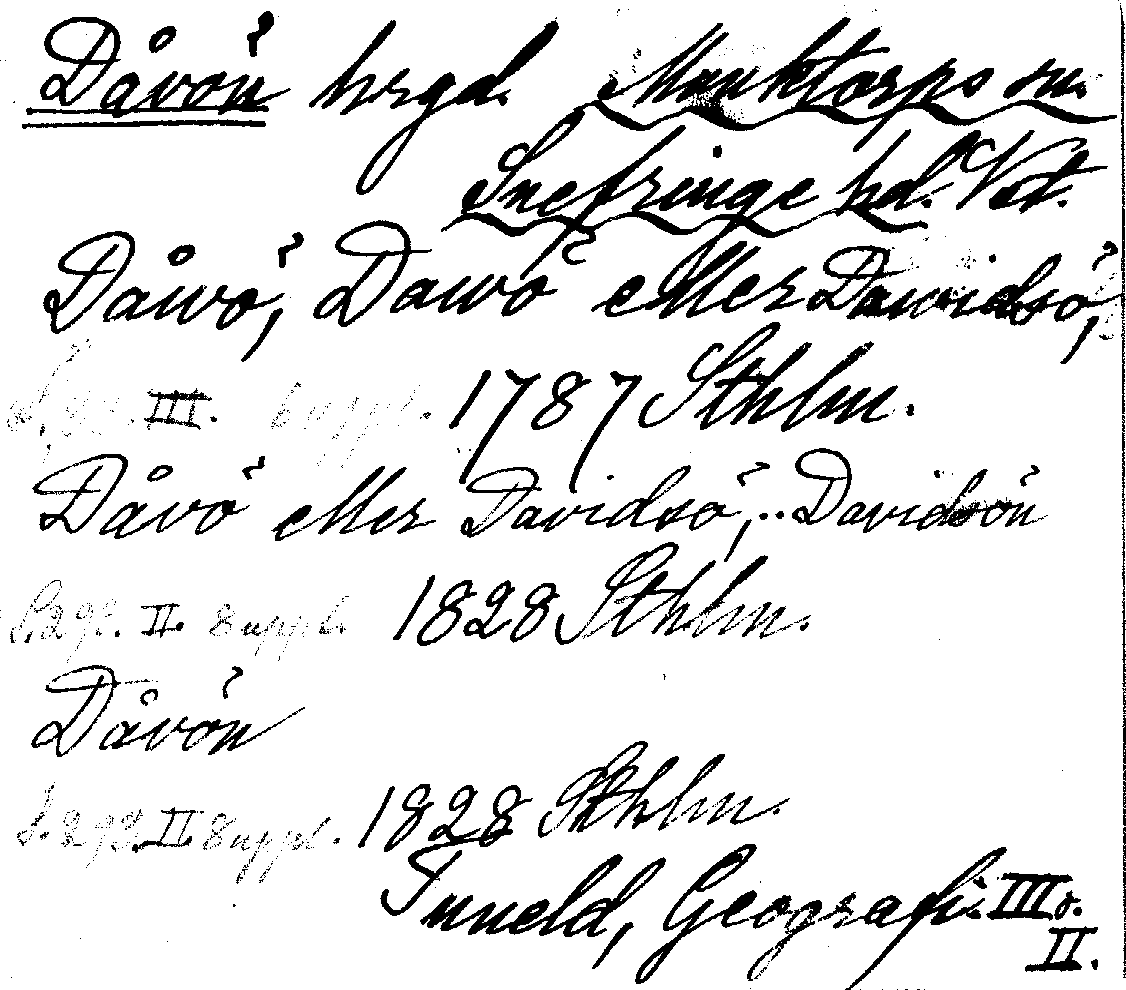 Dåvön hrgd. Munktorps sn.
Snefringe hd. Vstm.
Dåwö, Dawö eller Dawidsö,
S. III. Suppl. 1787 Sthlm.
Dåvö eller Davidsö,.. Davidsön
S. 292. II. Suppl. 1828 Sthlm.
Dåvön
S. 292. II Suppl. 1828 Sthlm.
Tuneld, Geografi. III o.
II.